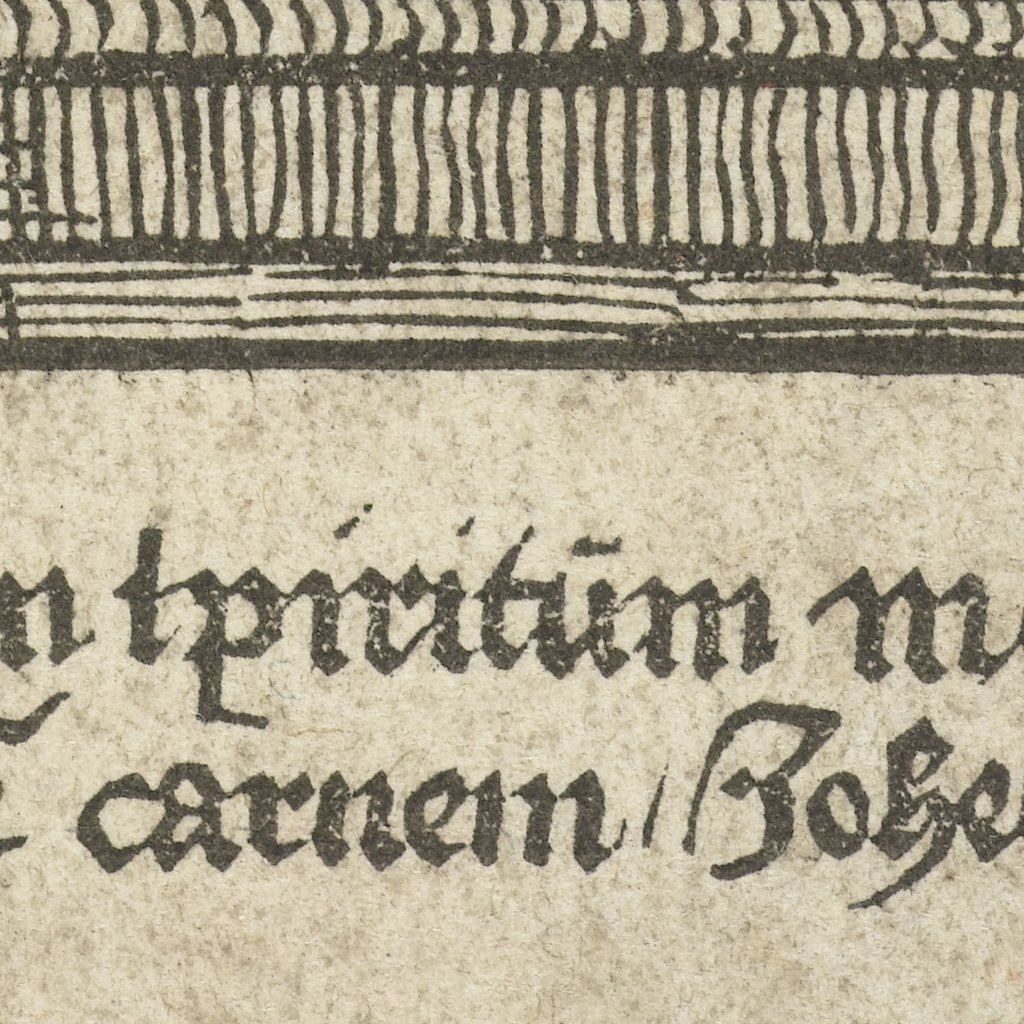 spiritūm
carnem / Johe